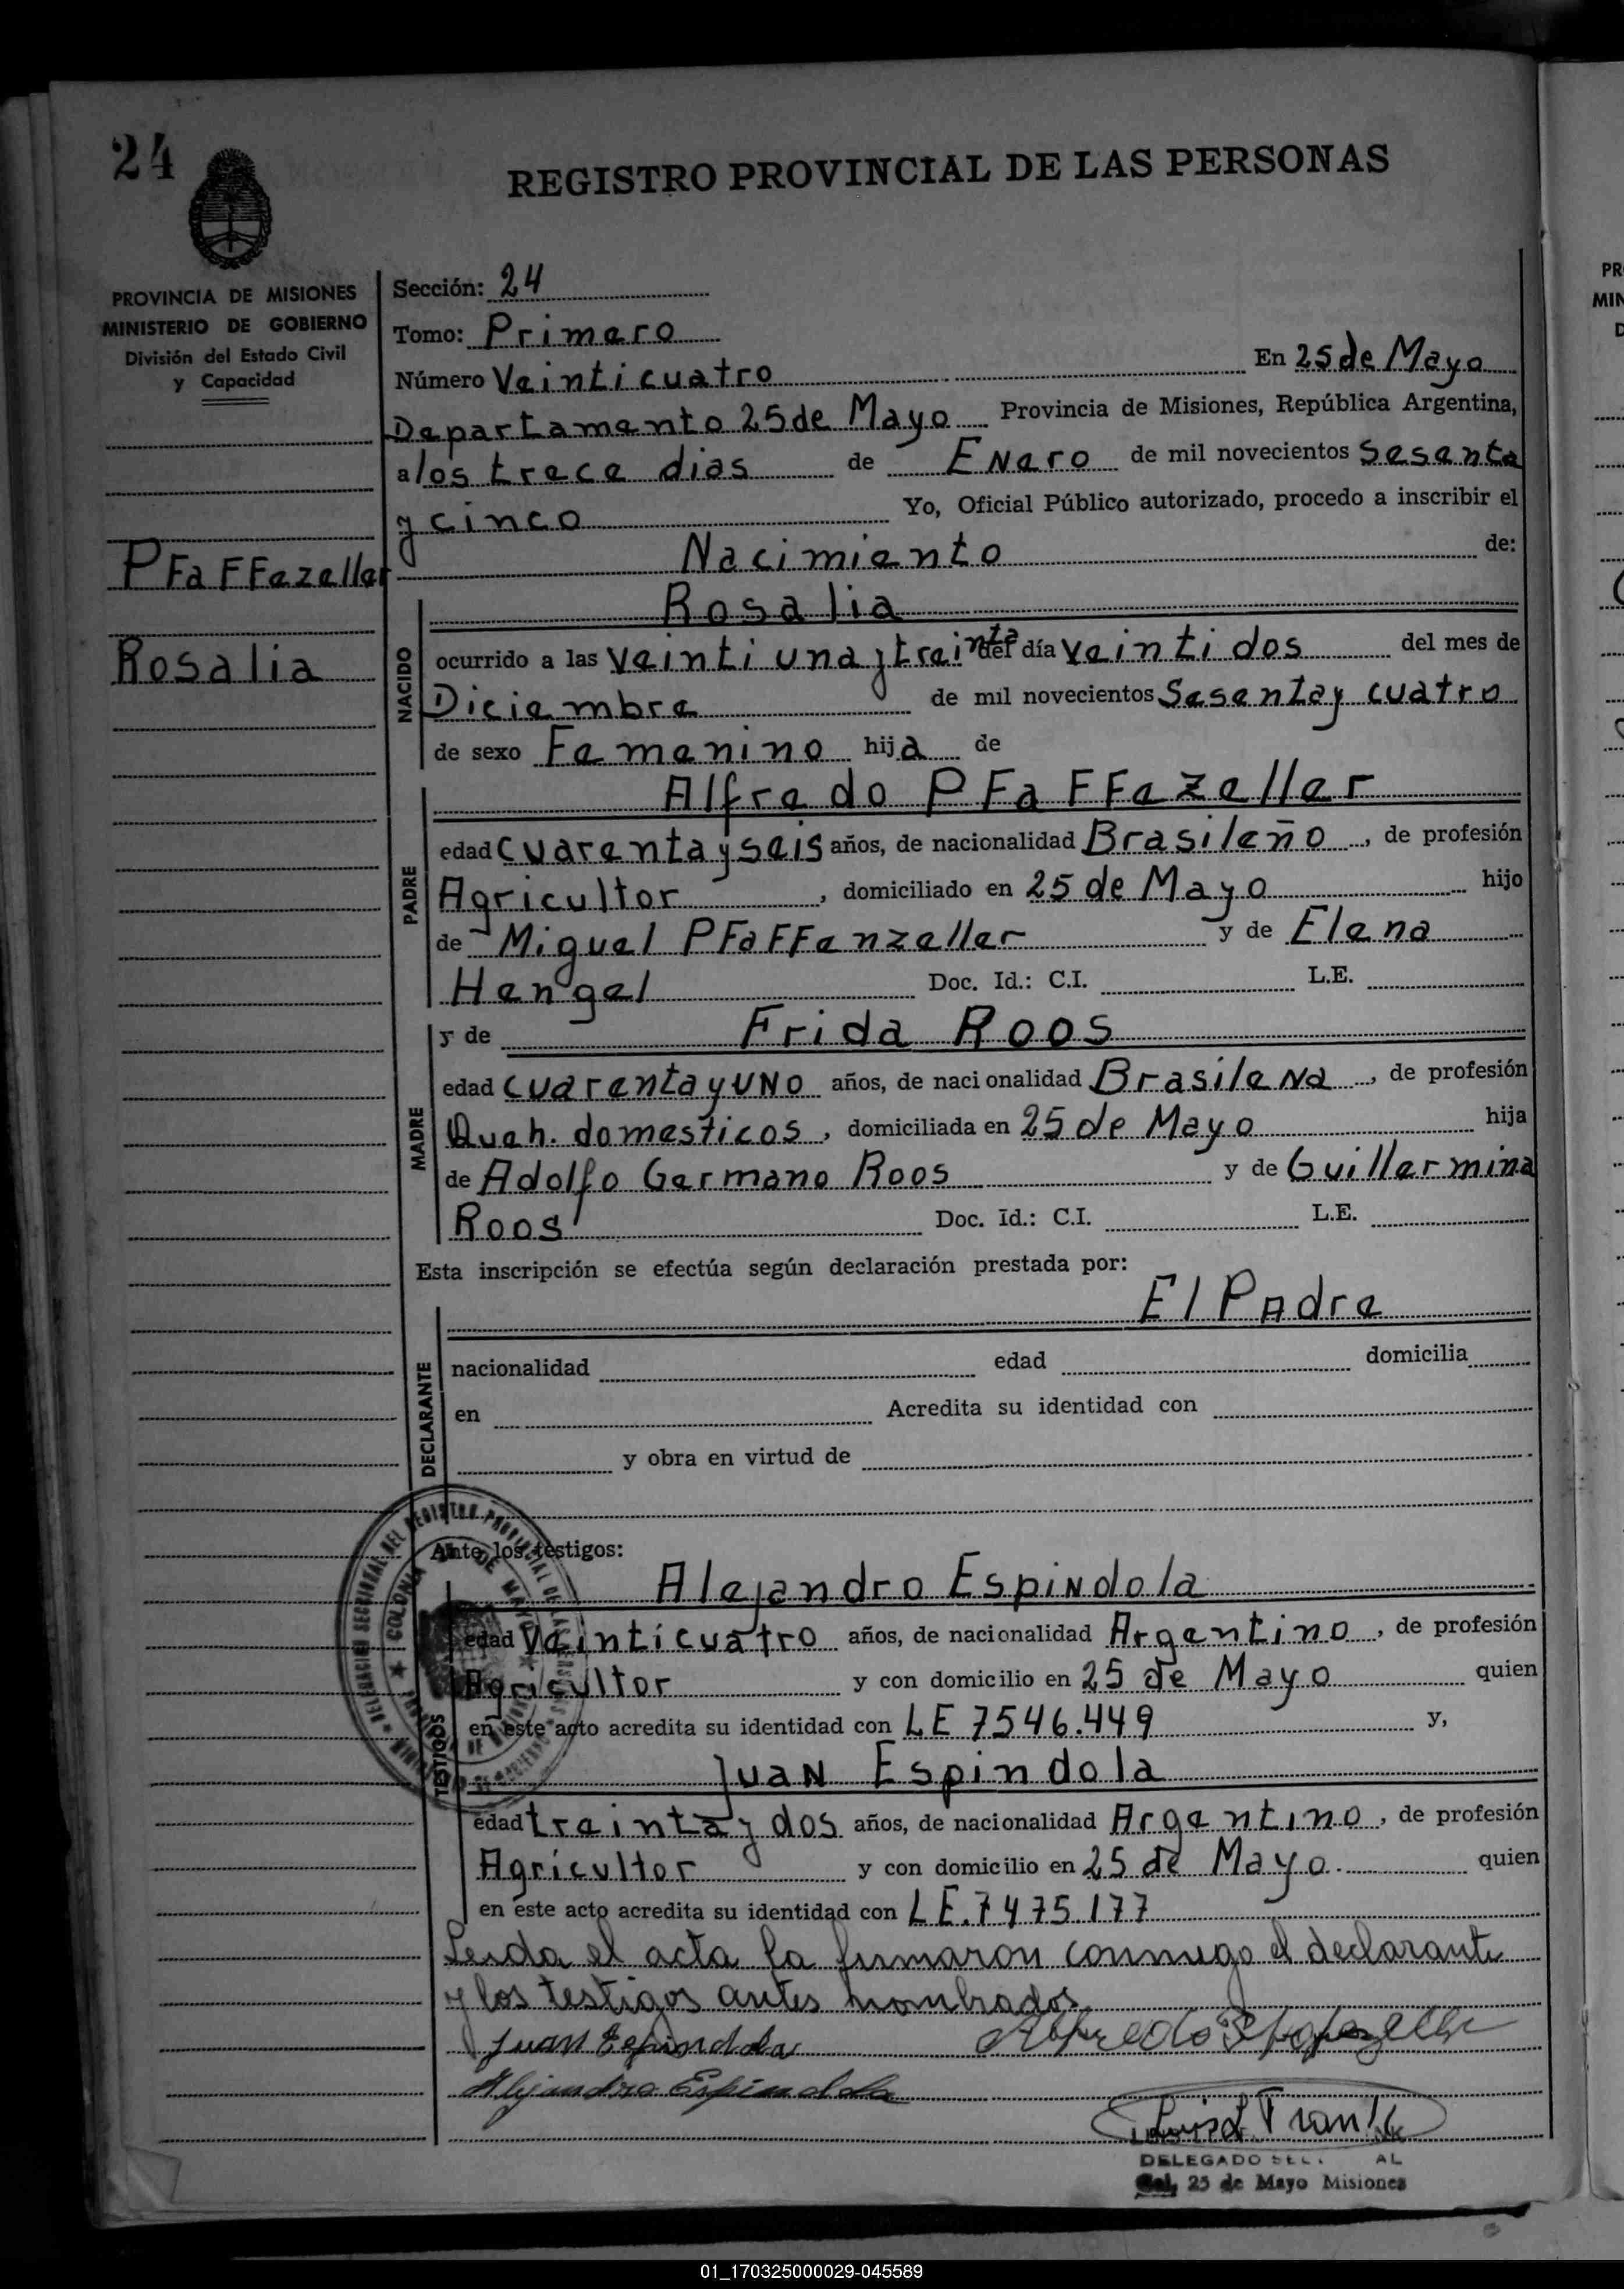 24
REGISTRO PROVINCIAL DE LAS PERSONAS
PROVINCIA DE MISIONES
MINISTERIO DE GOBIERNO
División del Estado Civil
y Capacidad
Sección: 24
Tomo: Primero
Número Veinticuatro En 25 de Mayo
Departamento 25 de Mayo Provincia de Misiones, República Argentina,
a los trece dias de Enero de mil novecientos Sesenta
y cinco Yo, Oficial Público autorizado, procedo a inscribir el
Nacimiento de:
PFaFFezeller
Rosalia
Rosalia
NACIDO
ocurrido a las Veinti una y treinta del día Veinti dos del mes de
Diciembre de mil novecientos Sesenta y cuatro
de sexo Femenino hija de
Alfredo PFaFFezeller
PADRE
edad cuarenta y seis años, de nacionalidad Brasileño, de profesión
Agricultor, domiciliado en 25 de Mayo hijo
de Miguel PFaFFenzeller y de Elena
Hengel Doc. Id.: C.I. L.E.
y de Frida Roos
MADRE
edad cuarenta y uno años, de nacionalidad Brasilena, de profesión
Queh. domesticos, domiciliada en 25 de Mayo hija
de Adolfo Germano Roos y de Guillermina
Roos Doc. Id.: C.I. L.E.
Esta inscripción se efectúa según declaración prestada por:
El Padre
DECLARANTE
nacionalidad edad domicilia
en Acredita su identidad con
y obra en virtud de
Ante los testigos:
Alejandro Espindola
TESTIGOS
edad Veinticuatro años, de nacionalidad Argentino, de profesión
Agricultor y con domicilio en 25 de Mayo quien
en este acto acredita su identidad con LE 7546.449 y,
Juan Espindola
edad treinta y dos años, de nacionalidad Argentino, de profesión
Agricultor y con domicilio en 25 de Mayo quien
en este acto acredita su identidad con LE. 7475.177
Leida el acta la firmaron conmigo el declarante
y los testigos antes nombrados
Juan Espindola
Alejandro Espindola
DELEGADO
Col. 25 de Mayo Misiones
01_170325000029-045589